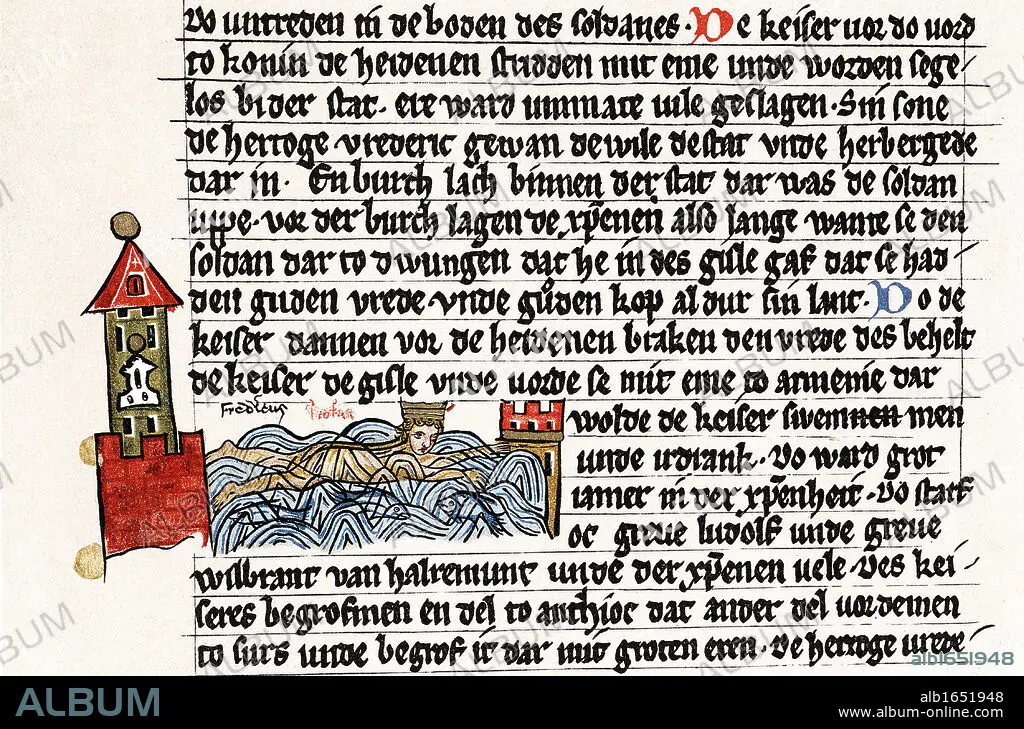 Do untreden in de boden des soldanes. De keiser uor do uord
to konin de heidenen stridden mit eme unde worden sege-
los bi der stat. ere ward unmate uile geslagen. Sin sone
de hertoge vrederic gewan de wile de stat unde herbergede
dar in. En burch lach binnen der stat dar was de soldan
uppe. vor der burch lagen de xp̄enen also lange wante se den
soldan dar to dwungen dat he in des gisle gaf dat se had-
den guden vrede unde gůden kop al dur sin lant. Do de
keiser dannen vor de heidenen braken den vrede des behelt
de keiser de gisle unde uorde se mit eme to armenie dar
fredericus
wolde de keiser swemmen
unde irdrank. Do ward grot
iamer in der xp̄enheit. Do starf
oc greue ludolf unde greue
wilbrant van halremunt unde der xp̄enen uele. Des kei-
seres begrofmen en del to anthioc dat ander del uordemen
to surs unde begrof it dar mit groten eren. De hertoge vrede-
ALBUM
alb1651948
ALBUM
alb1651948
www.album-online.com